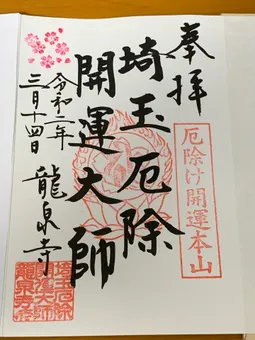 奉拝
厄除け開運本山
埼玉厄除
開運大師
龍泉寺
令和二年
三月十四日
埼玉厄除
開運大師
龍泉寺条